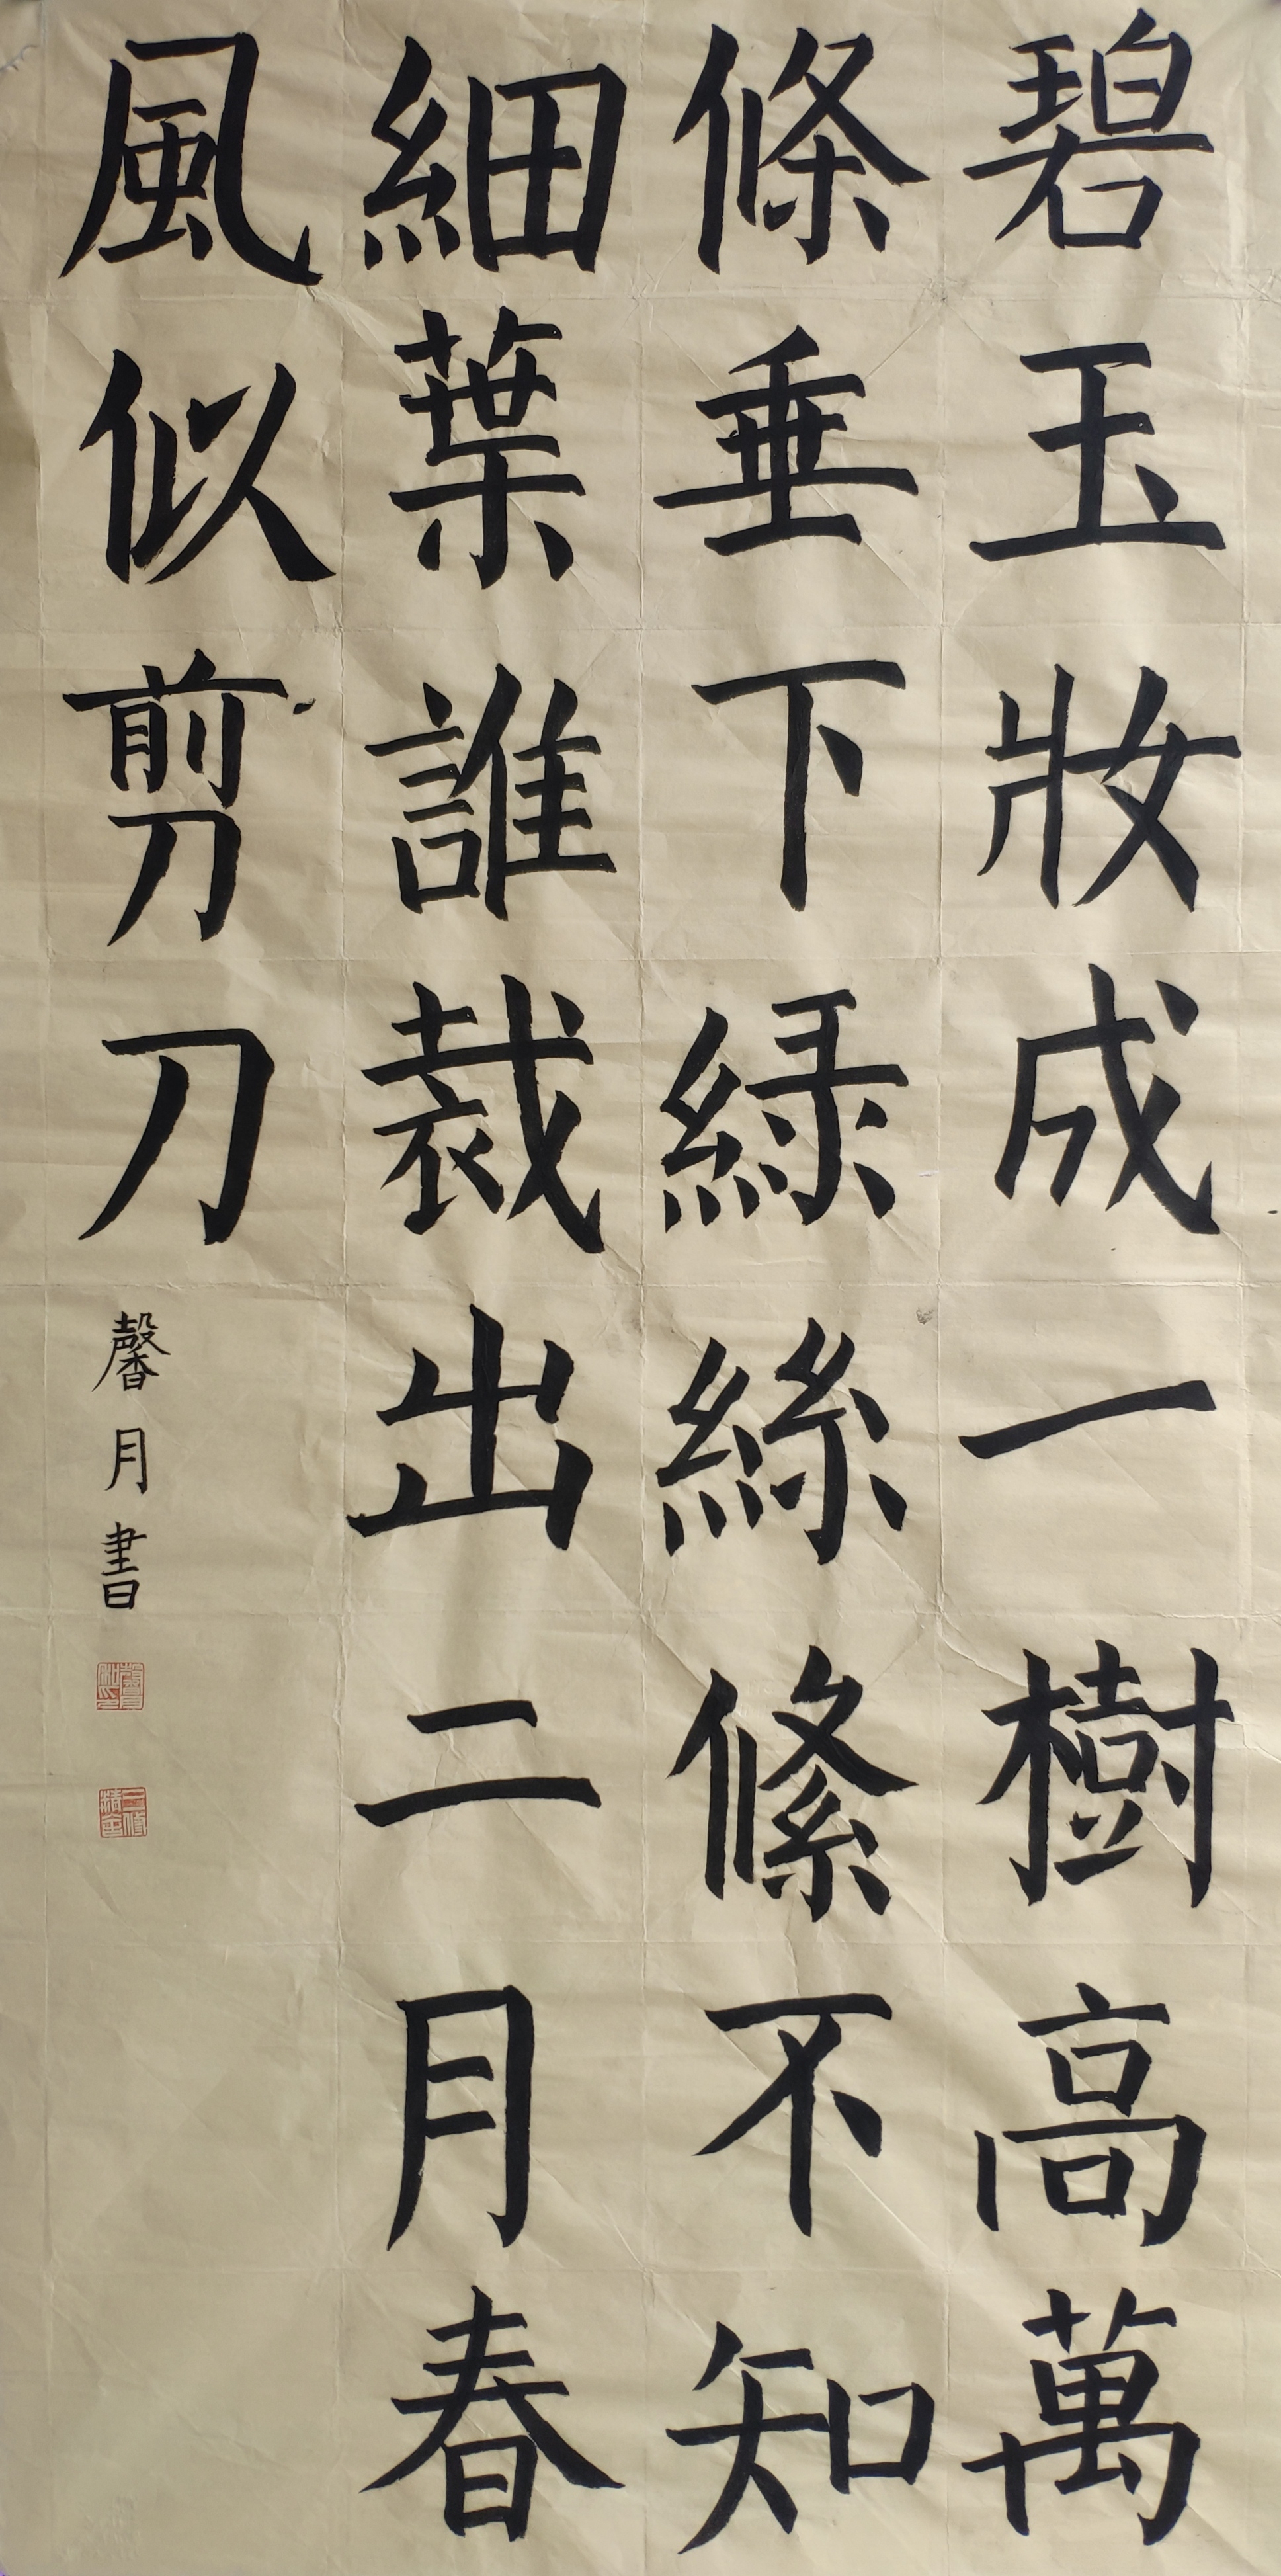 碧玉妝成一樹高萬
條垂下綠絲絛不知
細葉誰裁出二月春
風似剪刀
馨月書